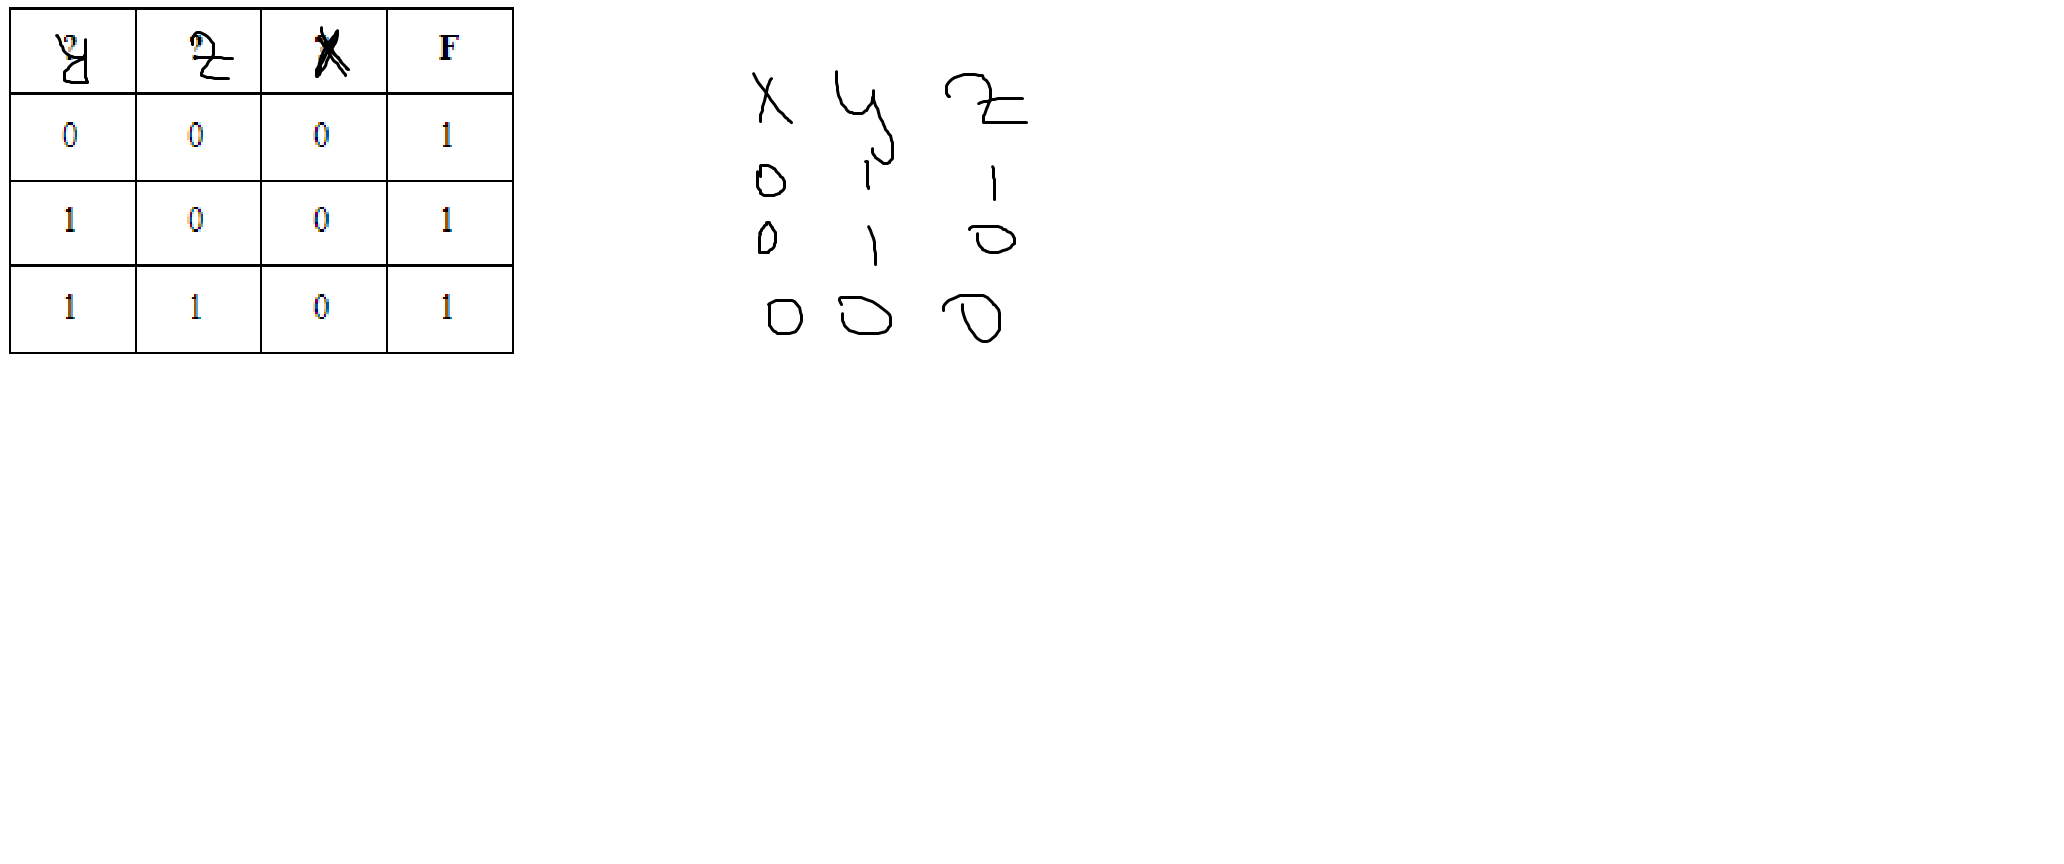 y z x F
0 0 0 1
1 0 0 1
1 1 0 1
x y z
0 1 1
0 1 0
0 0 0